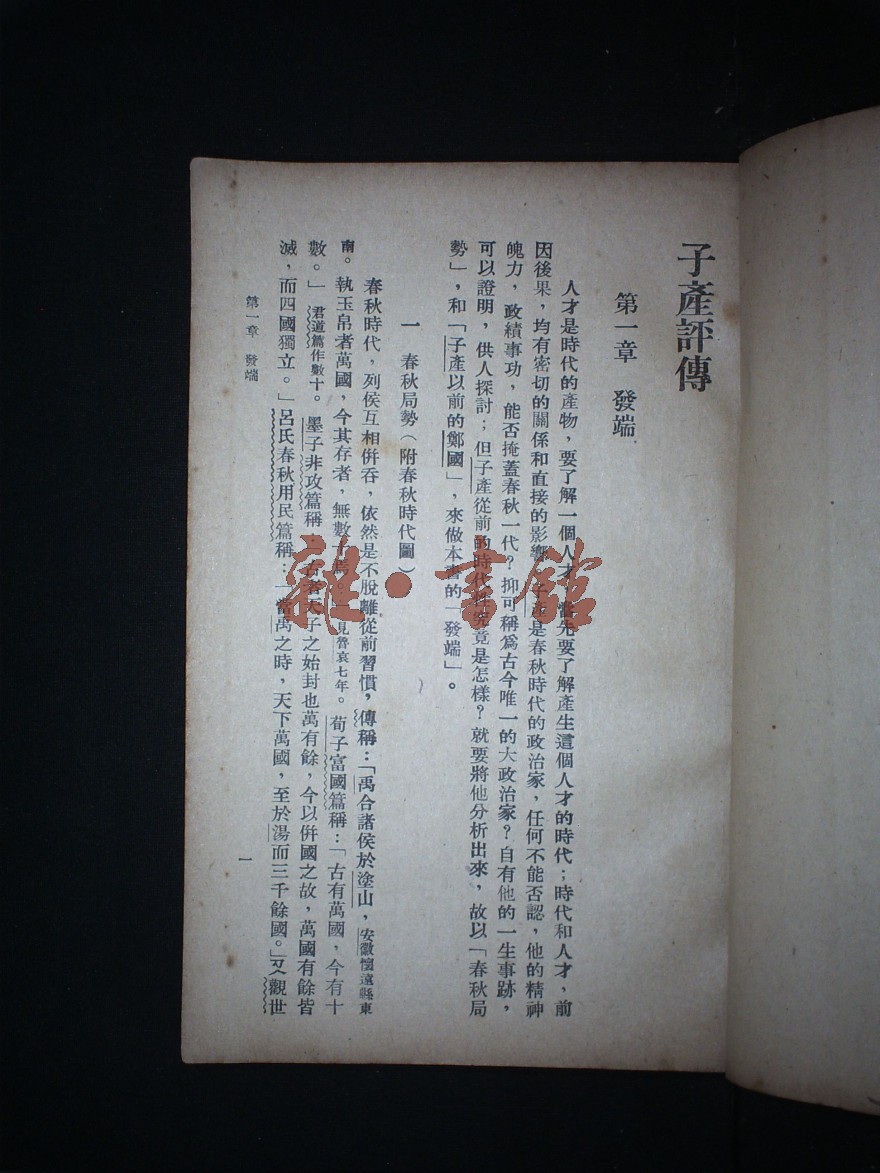 子產評傳
第一章　發端
人才是時代的產物，要了解一個人才，當先要了解產生這個人才的時代；時代和人才，前
因後果，均有密切的關係和直接的影響，子產是春秋時代的政治家，任何不能否認，他的精神
魄力，政績事功，能否掩蓋春秋一代？抑可稱為古今唯一的大政治家？自有他的一生事跡，
可以證明，供人探討；但子產從前的時代，究竟是怎樣？就要將他分析出來，故以「春秋局
勢」，和「子產以前的鄭國」，來做本書的「發端」。
一　春秋局勢（附春秋時代圖）
春秋時代，列侯互相併吞，依然是不脫離從前習慣，傳稱：「禹合諸侯於塗山，安徽懷遠縣東
南。執玉帛者萬國，今其存者，無數十焉。」見魯哀七年。荀子富國篇稱：「古有萬國，今有十
數。」君道篇作數十。墨子非攻篇稱：「古者天子之始封也萬有餘，今以併國之故，萬國有餘皆
滅，而四國獨立。」呂氏春秋用民篇稱：「當禹之時，天下萬國，至於湯而三千餘國。」又觀世
第一章　發端
一
雜·書館